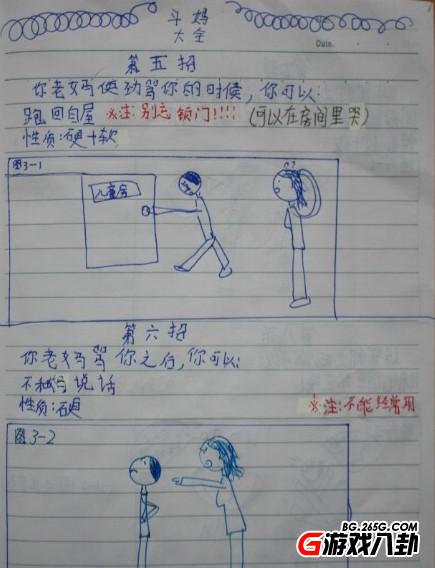 斗妈
大全
Date.
第五招
你老妈使劲骂你的时候，你可以:
跑回自屋 ※注:别忘锁门!!!! (可以在房间里哭)
性质:硬+软
图3-1
儿童房
第六招
你老妈骂你之后，你可以:
不和妈说话
性质:硬
※注:不能经常用
图3-2
BG.265G.COM
G游戏八卦